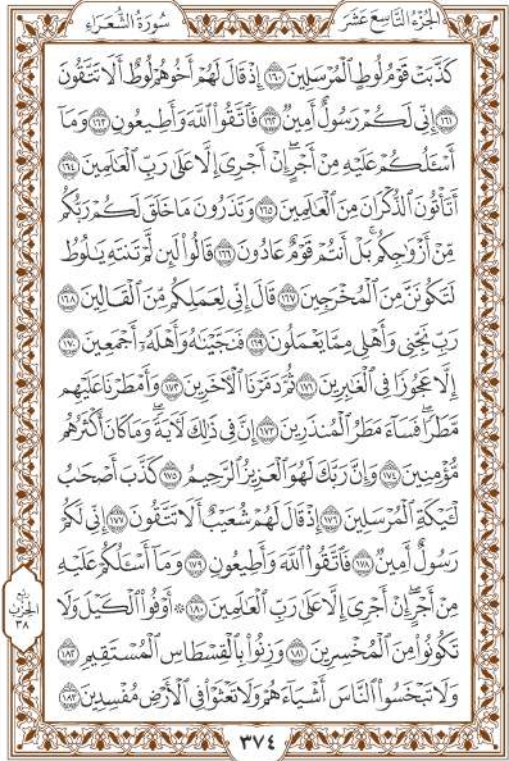 الجُزْءُ التَّاسِعَ عَشَرَ سُورَةُ الشُّعَرَاءِ
كَذَّبَتْ قَوْمُ لُوطٍ ٱلْمُرْسَلِينَ ١٦٠ إِذْ قَالَ لَهُمْ أَخُوهُمْ لُوطٌ أَلَا تَتَّقُونَ
١٦١ إِنِّي لَكُمْ رَسُولٌ أَمِينٌ ١٦٢ فَٱتَّقُوا۟ ٱللَّهَ وَأَطِيعُونِ ١٦٣ وَمَآ
أَسْـَٔلُكُمْ عَلَيْهِ مِنْ أَجْرٍۖ إِنْ أَجْرِىَ إِلَّا عَلَىٰ رَبِّ ٱلْعَـٰلَمِينَ ١٦٤
أَتَأْتُونَ ٱلذُّكْرَانَ مِنَ ٱلْعَـٰلَمِينَ ١٦٥ وَتَذَرُونَ مَا خَلَقَ لَكُمْ رَبُّكُم
مِّنْ أَزْوَٰجِكُمۚ بَلْ أَنتُمْ قَوْمٌ عَادُونَ ١٦٦ قَالُوا۟ لَئِن لَّمْ تَنتَهِ يَـٰلُوطُ
لَتَكُونَنَّ مِنَ ٱلْمُخْرَجِينَ ١٦٧ قَالَ إِنِّى لِعَمَلِكُم مِّنَ ٱلْقَالِينَ ١٦٨
رَبِّ نَجِّنِى وَأَهْلِى مِمَّا يَعْمَلُونَ ١٦٩ فَنَجَّيْنَـٰهُ وَأَهْلَهُۥٓ أَجْمَعِينَ ١٧٠
إِلَّا عَجُوزًا فِى ٱلْغَـٰبِرِينَ ١٧١ ثُمَّ دَمَّرْنَا ٱلْـَٔاخَرِينَ ١٧٢ وَأَمْطَرْنَا عَلَيْهِم
مَّطَرًاۖ فَسَآءَ مَطَرُ ٱلْمُنذَرِينَ ١٧٣ إِنَّ فِى ذَٰلِكَ لَـَٔايَةًۖ وَمَا كَانَ أَكْثَرُهُم
مُّؤْمِنِينَ ١٧٤ وَإِنَّ رَبَّكَ لَهُوَ ٱلْعَزِيزُ ٱلرَّحِيمُ ١٧٥ كَذَّبَ أَصْحَـٰبُ
لْـَٔيْكَةِ ٱلْمُرْسَلِينَ ١٧٦ إِذْ قَالَ لَهُمْ شُعَيْبٌ أَلَا تَتَّقُونَ ١٧٧ إِنِّى لَكُمْ
رَسُولٌ أَمِينٌ ١٧٨ فَٱتَّقُوا۟ ٱللَّهَ وَأَطِيعُونِ ١٧٩ وَمَآ أَسْـَٔلُكُمْ عَلَيْهِ
مِنْ أَجْرٍۖ إِنْ أَجْرِىَ إِلَّا عَلَىٰ رَبِّ ٱلْعَـٰلَمِينَ ١٨٠ ۞ أَوْفُوا۟ ٱلْكَيْلَ وَلَا
تَكُونُوا۟ مِنَ ٱلْمُخْسِرِينَ ١٨١ وَزِنُوا۟ بِٱلْقِسْطَاسِ ٱلْمُسْتَقِيمِ ١٨٢
وَلَا تَبْخَسُوا۟ ٱلنَّاسَ أَشْيَآءَهُمْ وَلَا تَعْثَوْا۟ فِى ٱلْأَرْضِ مُفْسِدِينَ ١٨٣
ربع
الحزب
٣٨
٣٧٤